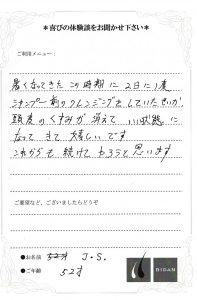 ＊喜びの体験談をお聞かせ下さい＊
ご利用メニュー：
暑くなってきた この時期に 2日に1度
シャンプー前のクレンジングをしていたせいか、
頭皮のくすみが消えて いい状態に
なってきて 嬉しいです
これからも 続けて もらうと思います
ご要望など、ございましたらどうぞ
●お名前 J.S.
●ご年齢 52才
BIGAN